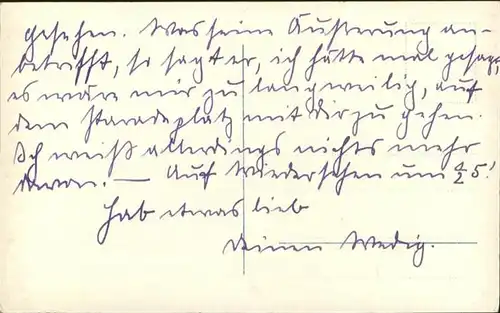 gesehen. Was seine Äußerung an-
betrifft, so sagt er, ich hätte mal gesagt,
es wäre mir zu langweilig, auf
dem Paradeplatz mit dir zu gehen.
Ich weiß allerdings nichts mehr
davon. — Auf Wiedersehen um ½ 5!
Hab etwas lieb
Deinen Wedig.